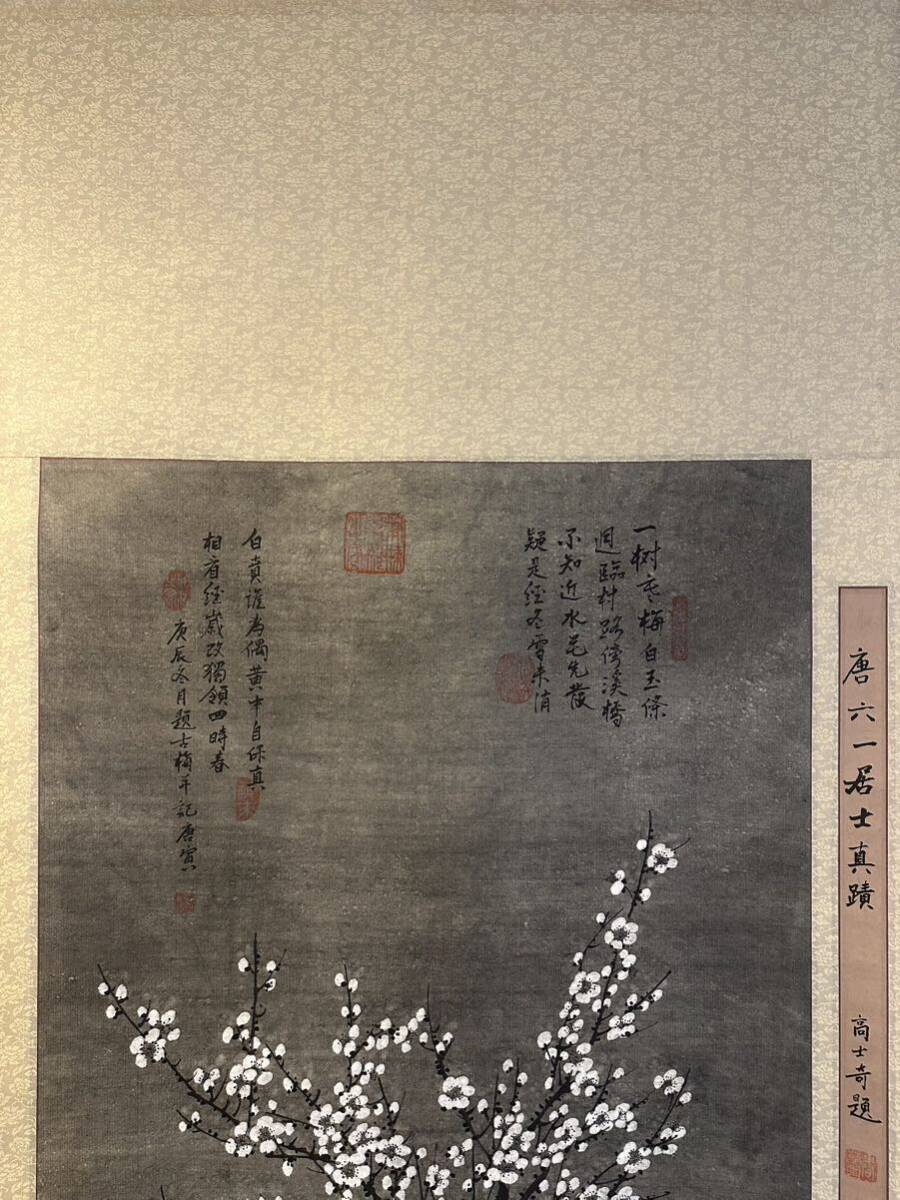 唐六一居士真蹟
高士奇題
一树寒梅白玉條
迥臨村路傍溪橋
不知近水花先發
疑是經冬雪未消
白賁誰為偶黃中自保真
相看經歲改獨領四時春
庚辰冬月題古梅并記唐寅